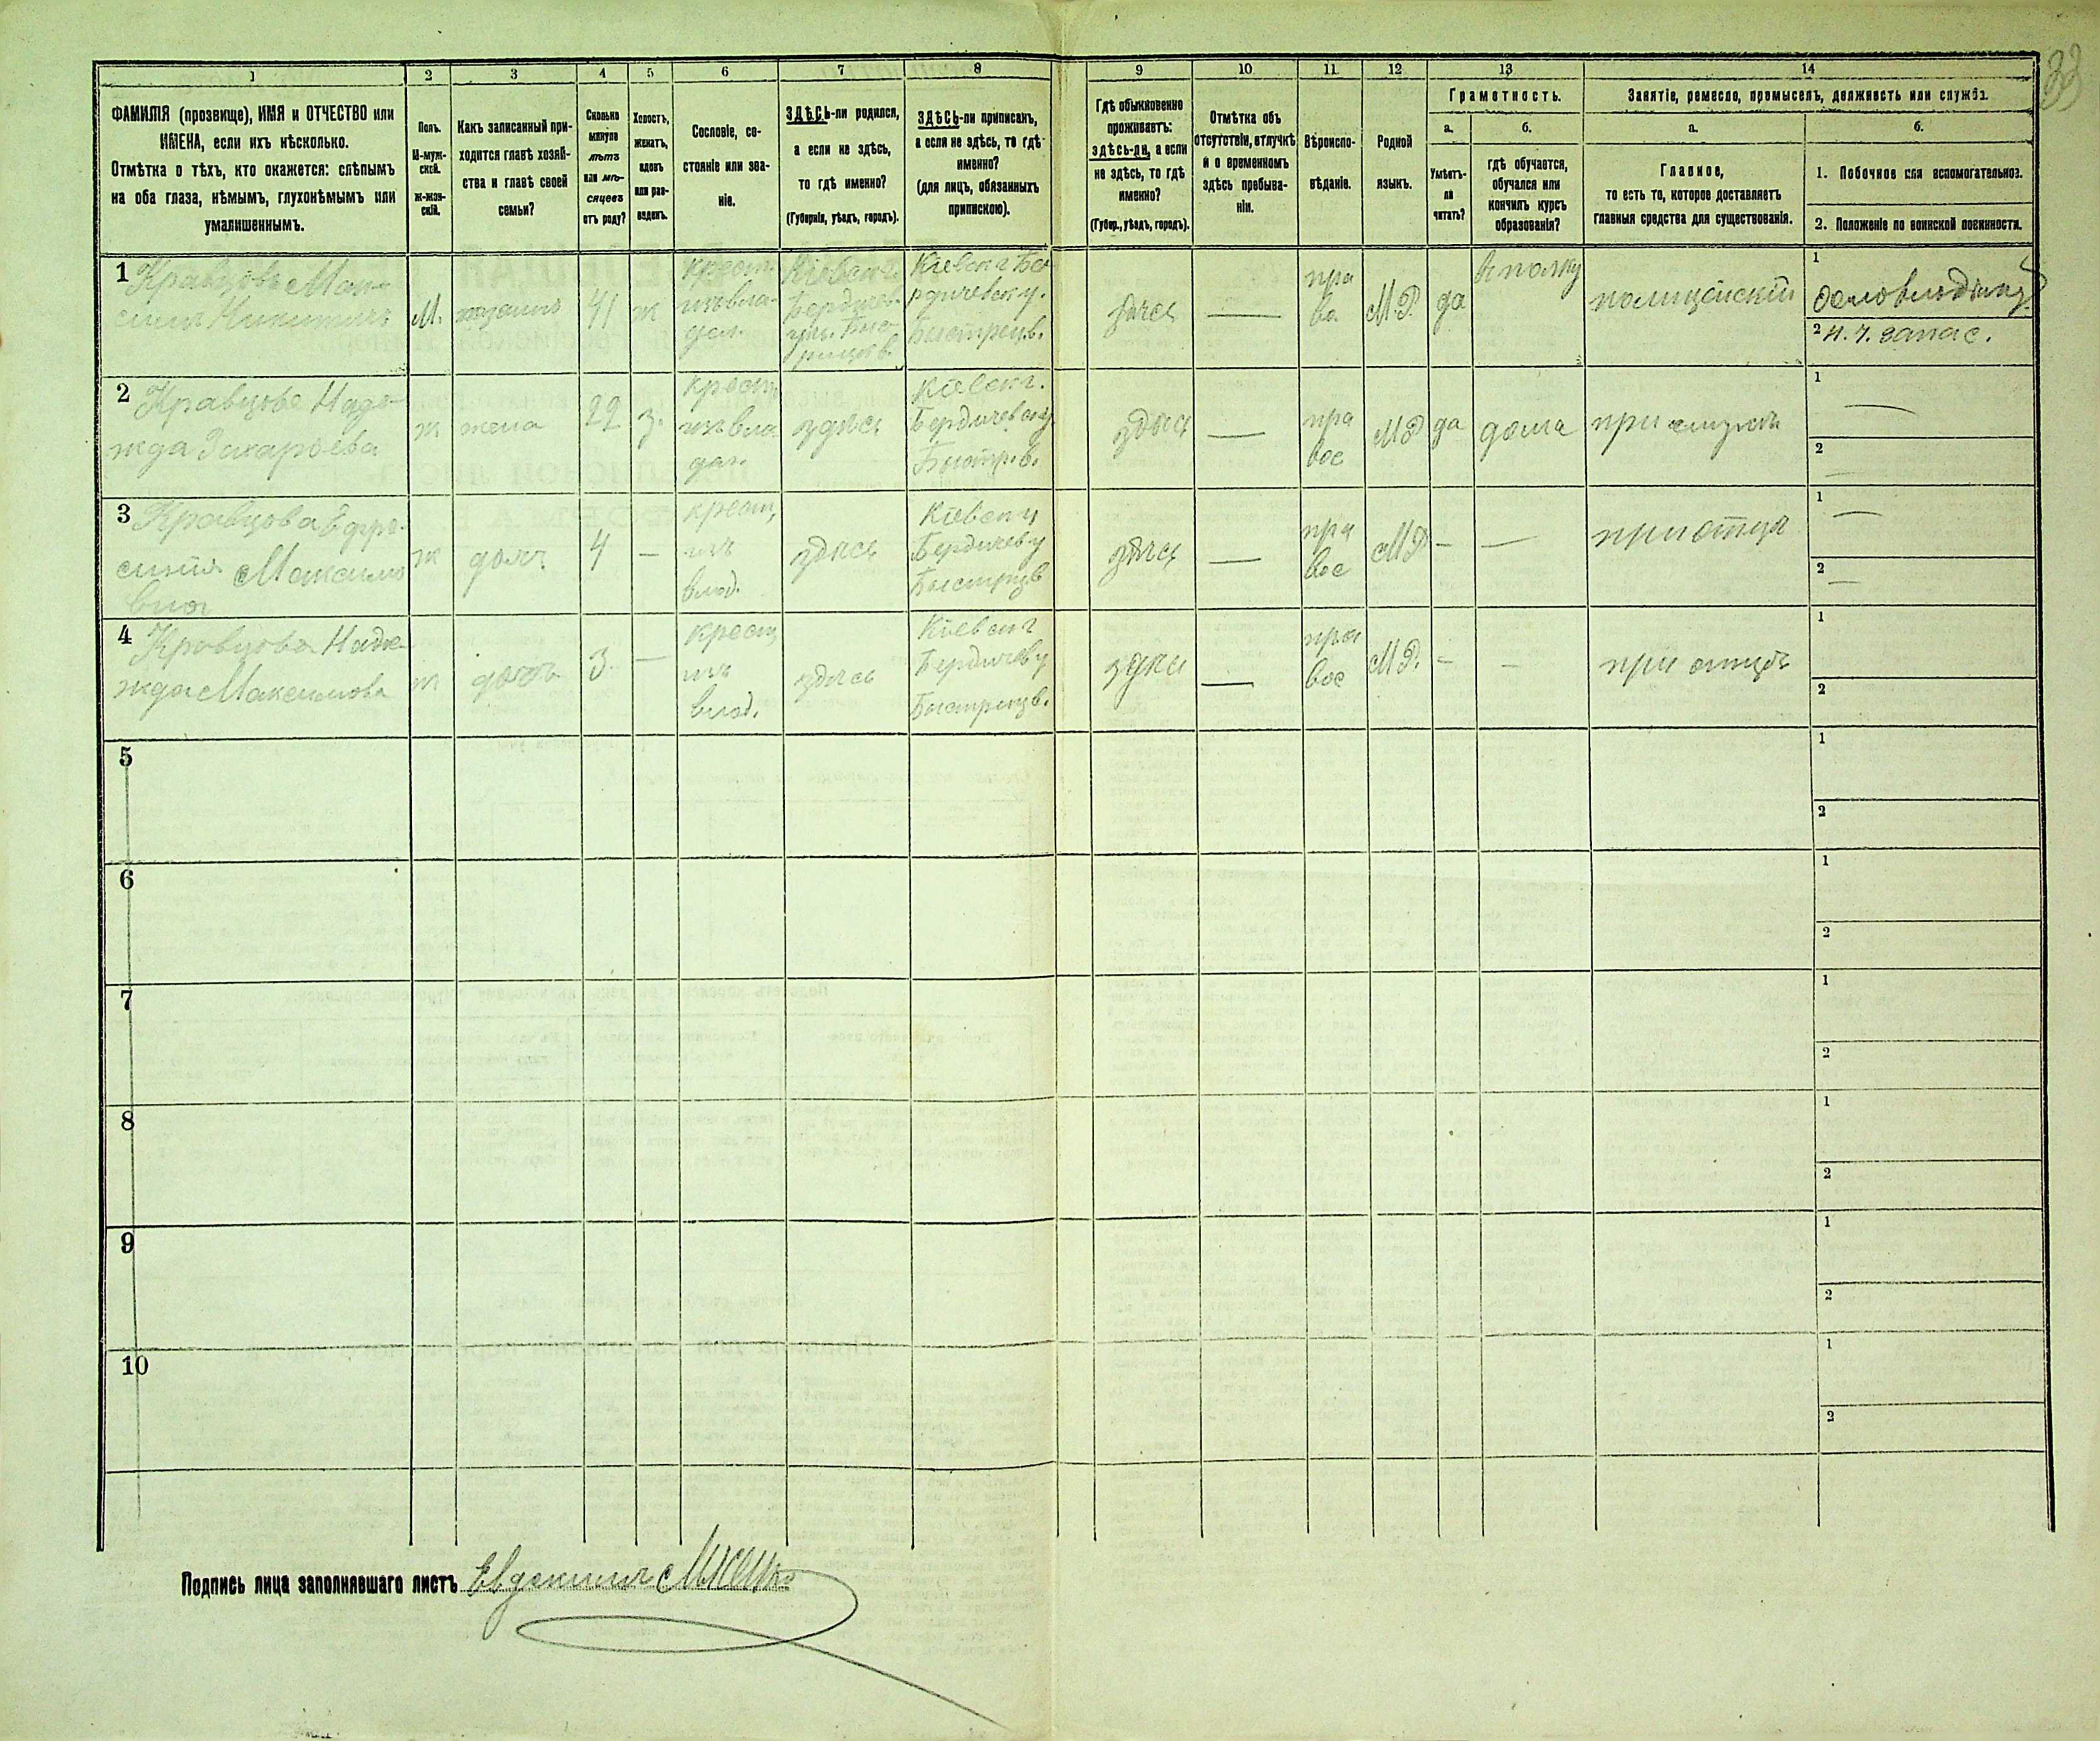 33
1 2 3 4 5 6 7 8 9 10 11 12 13 14
ФАМИЛІЯ (прозвище), ИМЯ и ОТЧЕСТВО или
ИМЕНА, если ихъ нѣсколько.
Отмѣтка о тѣхъ, кто окажется: слѣпымъ
на оба глаза, нѣмымъ, глухонѣмымъ или
умалишеннымъ.
Полъ.
М-муж-
ской.
Ж-жен-
скій.
Какъ записанный при-
ходится главѣ хозяй-
ства и главѣ своей
семьи?
Сколько
минуло
лѣтъ
или мѣ-
сяцевъ
отъ роду?
Холостъ,
женатъ,
вдовъ
или раз-
веденъ.
Сословіе, со-
стояніе или зва-
ніе.
ЗДѢСЬ-ли родился,
а если не здѣсь,
то гдѣ именно?
(Губернія, уѣздъ, городъ).
ЗДѢСЬ-ли приписанъ,
а если не здѣсь, то гдѣ
именно?
(для лицъ, обязанныхъ
припискою).
Гдѣ обыкновенно
проживаетъ:
здѣсь-ли, а если
не здѣсь, то гдѣ
именно?
(Губер., уѣздъ, городъ).
Отмѣтка объ
отсутствіи, отлучкѣ
и о временномъ
здѣсь пребыва-
ніи.
Вѣроиспо-
вѣданіе.
Родной
языкъ.
Грамотность.
а.
Умѣетъ-
ли
читать?
б.
гдѣ обучается,
обучался или
кончилъ курсъ
образованія?
Занятіе, ремесло, промыселъ, должность или служба.
а.
Главное,
то есть то, которое доставляетъ
главныя средства для существованія.
б.
1. Побочное или вспомогательное.
2. Положеніе по воинской повинности.
1 Кравцовъ Мак-
симъ Никитичъ
М.
хозяинъ
41
ж
крест.
изъ вла-
дѣл.
Кіевск г.
Бердичев.
уѣз. Быс-
трицов.
Кіевск г Бе
рдичевск у.
Быстрецв.
здѣсь
—
пра
во
М.Р.
да
в полку
полицейскій
1
домовладѣлец
2 н.ч. запас.
2 Кравцова Наде-
жда Захарьева
ж
жена
22
з.
крест.
изъ вла
дѣл.
здѣсь
Кіевск г.
Бердичевск у
Быстр.в.
здѣсь
—
пра
вос
МР
да
дома
при мужѣ
1
—
2
—
3 Кравцова Ефро-
синія Максимо
вна
ж
доч.
4
—
крест,
изъ
влад.
здѣсь
Кіевск у
Бердичев у
Быстрицв
здѣсь
—
пра
вос
МР
—
—
при отцѣ
1
—
2
—
4 Кравцова Наде-
жда Максимова
ж
дочь
3.
—
крест,
изъ
влад.
здѣсь
Кіевск г
Бердичев у
Быстрицв.
здѣсь
—
пра
вос
М.Р.
—
—
при отцѣ
1
2
5
1
2
6
1
2
7
1
2
8
1
2
9
1
2
10
1
2
Подпись лица заполнявшаго листъ